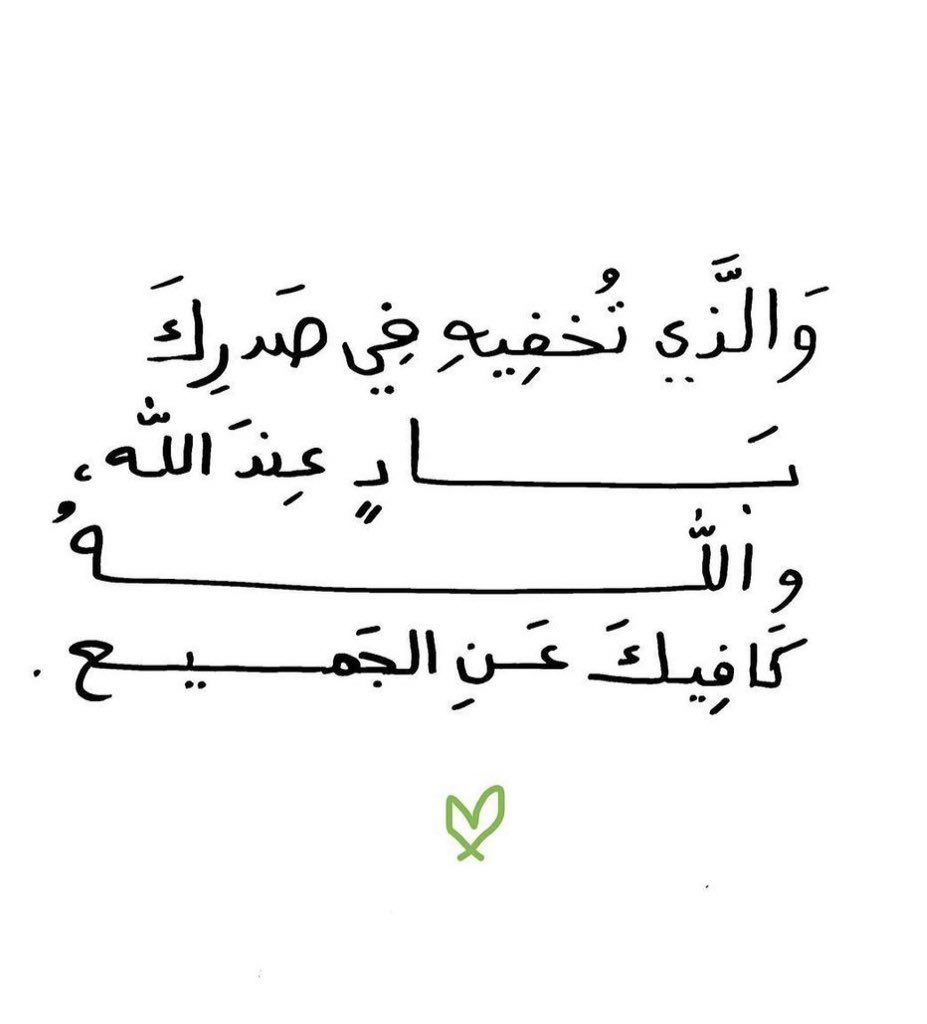 وَالَّذِي تُخفِيهِ فِي صَدرِكَ
بَـــــادٍ عِندَ اللّٰه،
واللّٰـــــهُ
كَافِيكَ عَـنِ الجَمـــيـــع .